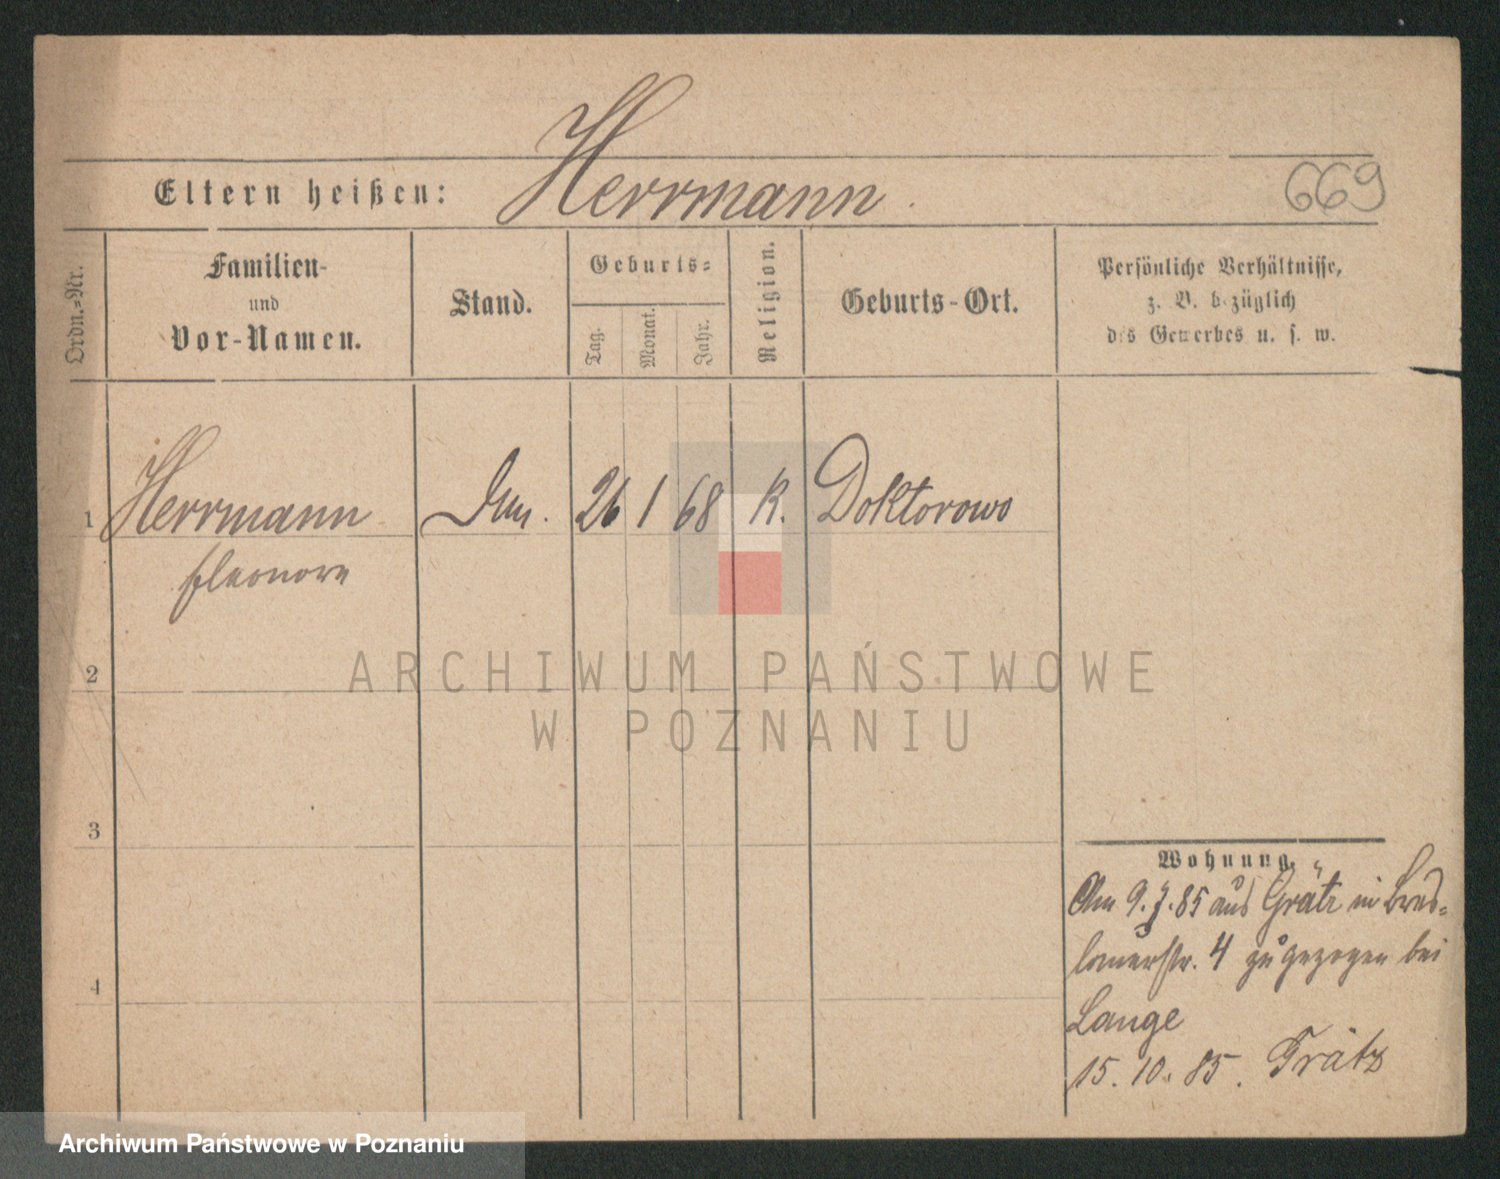 Herrmann.
669
Eltern heißen:
Ordn.-Nr.
Familien-
und
Vor-Namen.
Stand.
Geburts-
Tag.
Monat.
Jahr.
Religion.
Geburts-Ort.
Persönliche Verhältnisse,
z. B. bezüglich
des Gewerbes u. s. w.
1 Herrmann 26 1 68 K. Doktorowo
Eleonore
2
3
4
ARCHIWUM PAŃSTWOWE
W POZNANIU
Wohnung.
Am 9.7.85 aus Grätz in Bres-
lauerstr. 4 zugezogen bei
Lange
15. 10. 85. Grätz
Archiwum Państwowe w Poznaniu